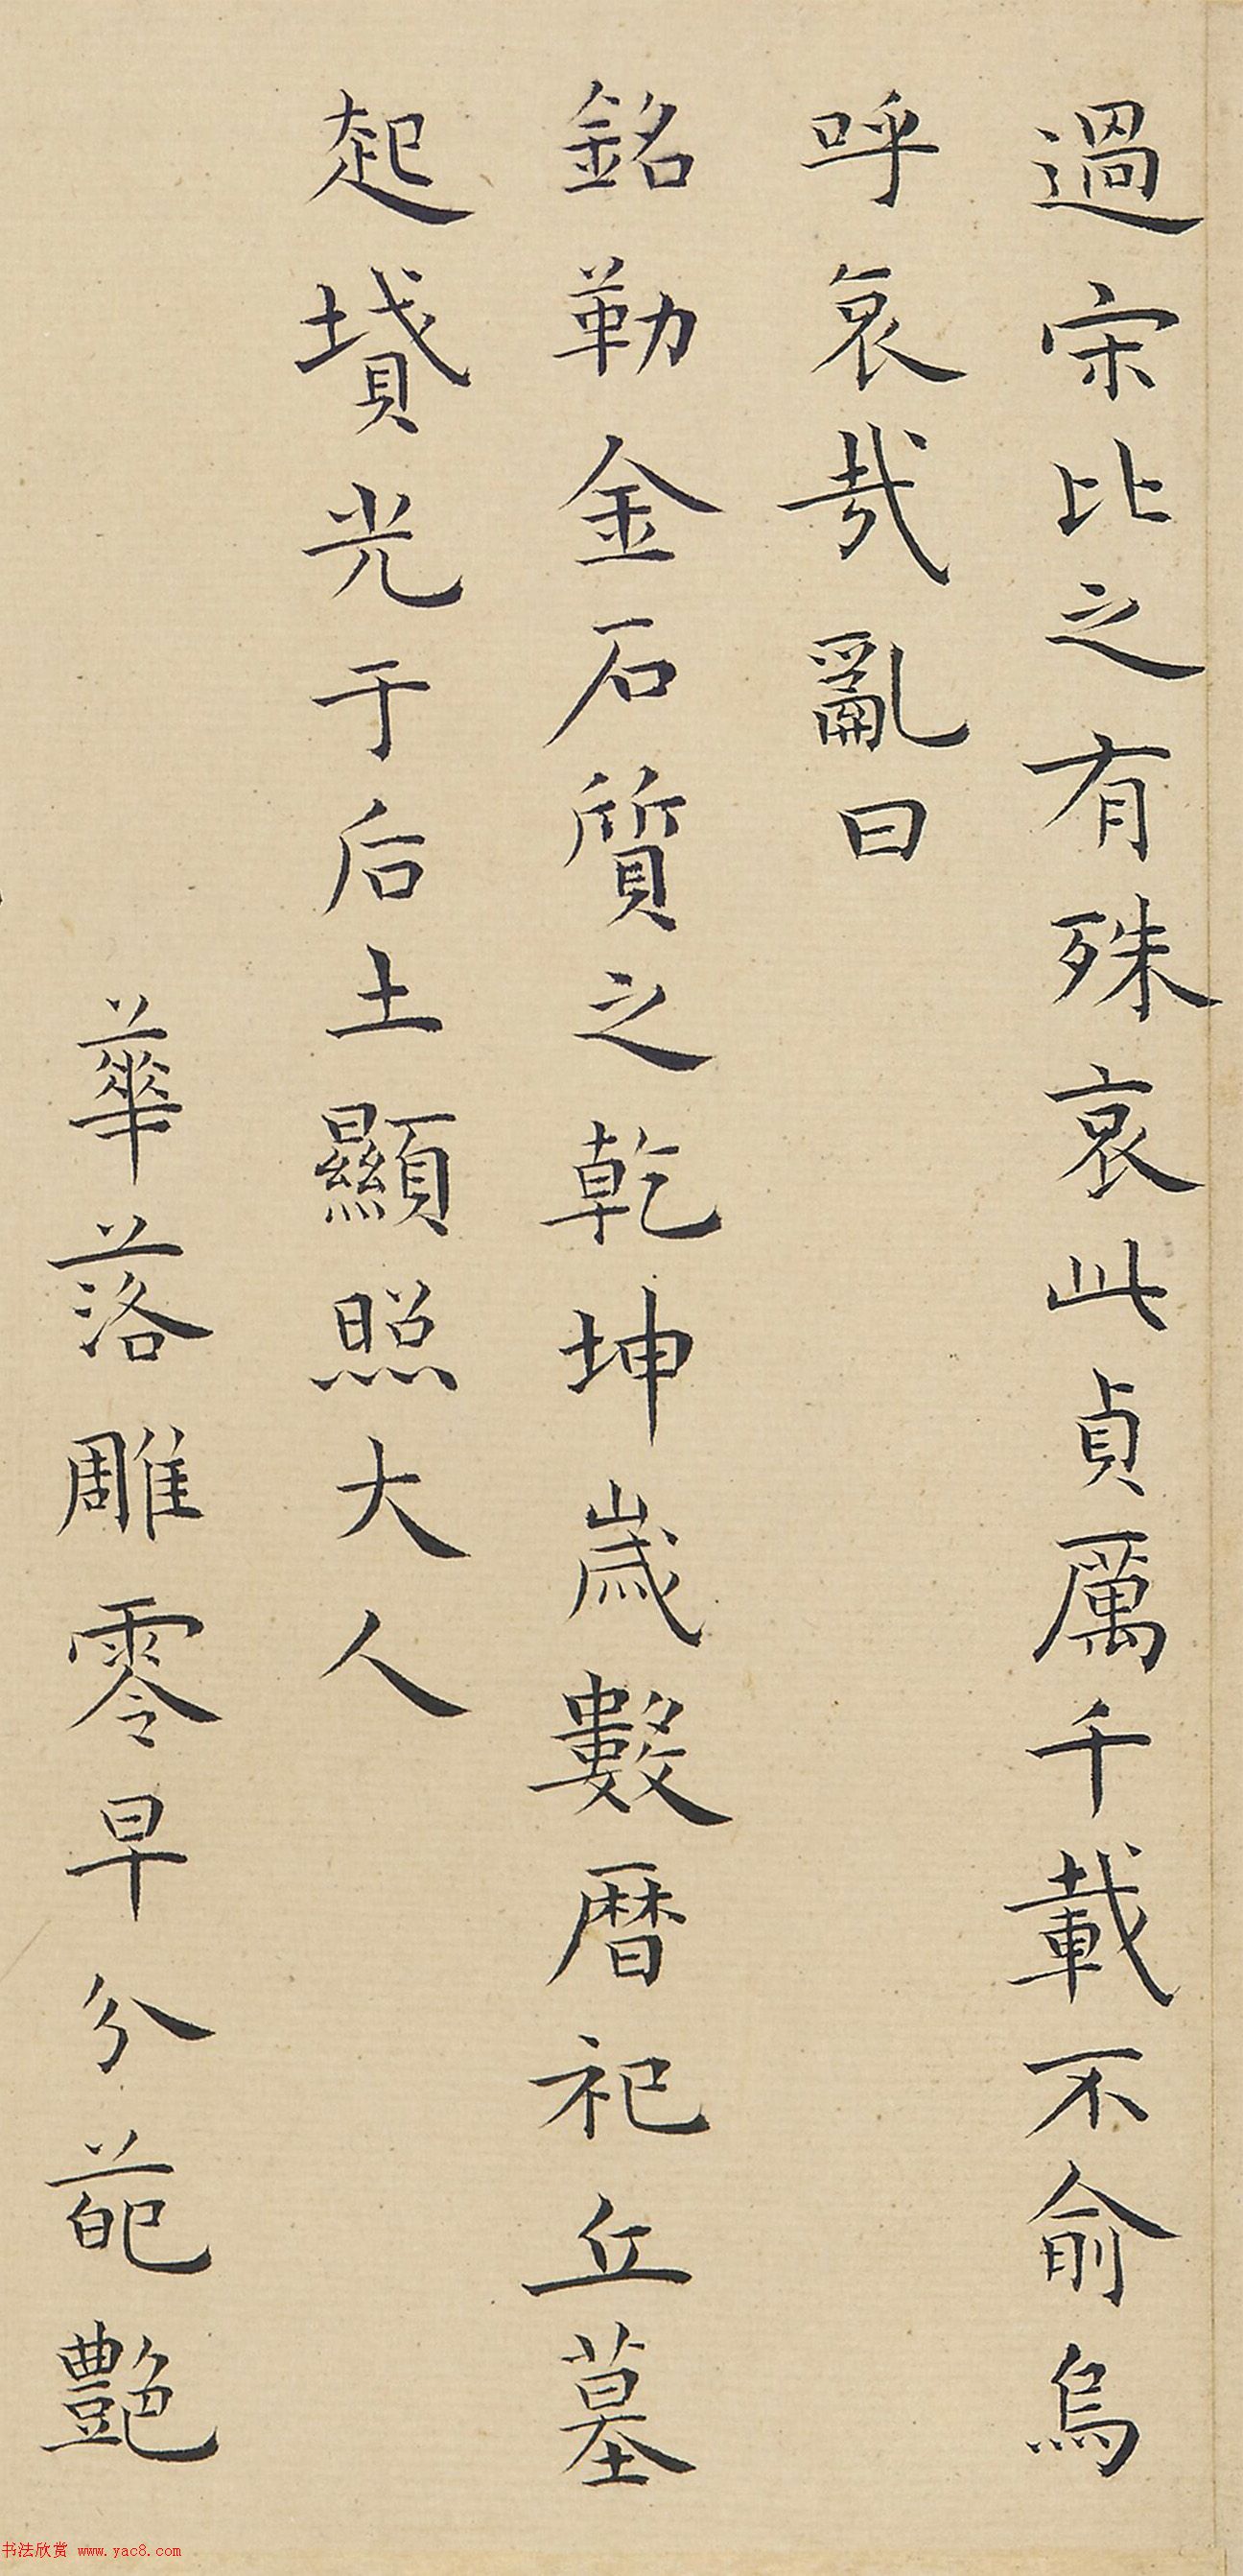 過宋比之有殊哀此貞厲千載不俞烏
呼哀哉亂曰
銘勒金石質之乾坤歲數曆祀丘墓
起墳光于后土顯照大人
華落雕零早分葩艷
书法欣赏 www.yac8.com